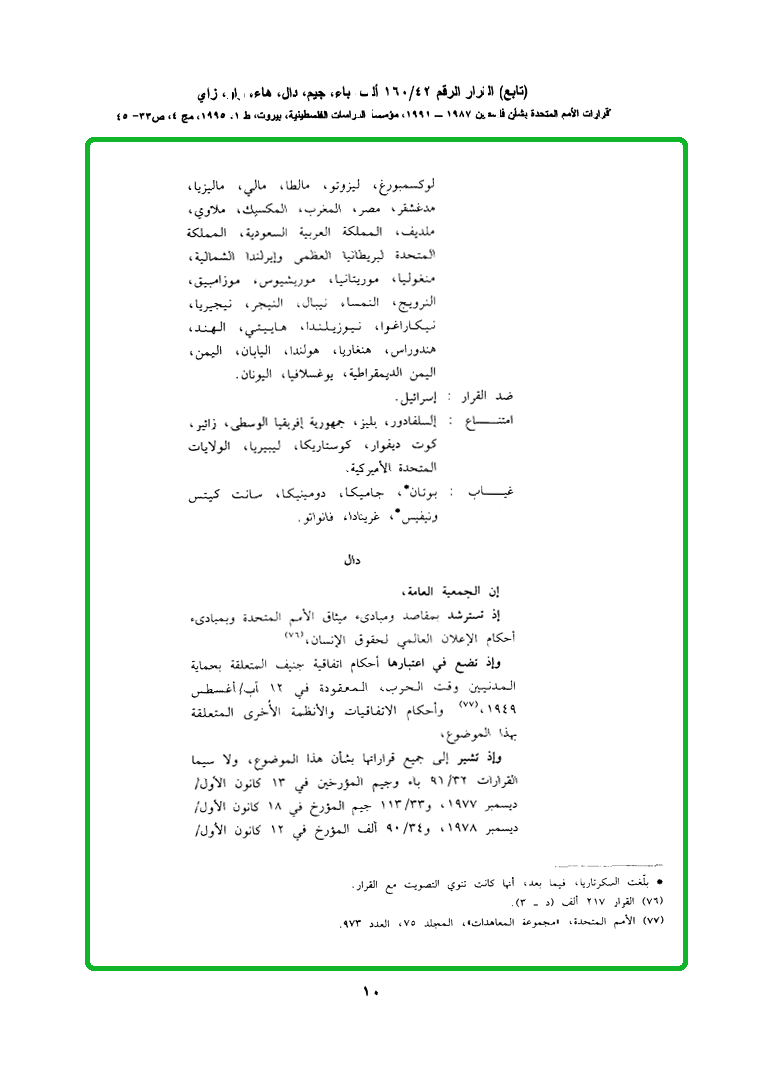 (تابع) القرار الرقم ١٦٠/٤٢ ألف، باء، جيم، دال، هاء، واو، زاي
قرارات الأمم المتحدة بشأن فلسطين ١٩٨٧ – ١٩٩١، مؤسسة الدراسات الفلسطينية، بيروت، ط ١، ١٩٩٥، مج ٤، ص٣٣- ٤٥
لوكسمبورغ، ليزوتو، مالطا، مالي، ماليزيا،
مدغشقر، مصر، المغرب، المكسيك، ملاوي،
ملديف، المملكة العربية السعودية، المملكة
المتحدة لبريطانيا العظمى وإيرلندا الشمالية،
منغوليا، موريتانيا، موريشيوس، موزامبيق،
النرويج، النمسا، نيبال، النيجر، نيجيريا،
نيكاراغوا، نيوزيلندا، هاييتي، الهند،
هندوراس، هنغاريا، هولندا، اليابان، اليمن،
اليمن الديمقراطية، يوغسلافيا، اليونان.
ضد القرار : إسرائيل.
امتنـــاع : إلسلفادور، بليز، جمهورية إفريقيا الوسطى، زائير،
كوت ديفوار، كوستاريكا، ليبيريا، الولايات
المتحدة الأميركية.
غيـــاب : بوتان*، جاميكا، دومينيكا، سانت كيتس
ونيفيس*، غرينادا، فانواتو.
دال
إن الجمعية العامة،
إذ تسترشد بمقاصد ومبادىء ميثاق الأمم المتحدة وبمبادىء
أحكام الإعلان العالمي لحقوق الإنسان،(٧٦)
وإذ تضع في اعتبارها أحكام اتفاقية جنيف المتعلقة بحماية
المدنيين وقت الحرب، المعقودة في ١٢ آب/أغسطس
١٩٤٩،(٧٧) وأحكام الاتفاقيات والأنظمة الأخرى المتعلقة
بهذا الموضوع،
وإذ تشير إلى جميع قراراتها بشأن هذا الموضوع، ولا سيما
القرارات ٩١/٣٢ باء وجيم المؤرخين في ١٣ كانون الأول/
ديسمبر ١٩٧٧، و١١٣/٣٣ جيم المؤرخ في ١٨ كانون الأول/
ديسمبر ١٩٧٨، و٩٠/٣٤ ألف المؤرخ في ١٢ كانون الأول/
* بلّغت السكرتاريا، فيما بعد، أنها كانت تنوي التصويت مع القرار.
(٧٦) القرار ٢١٧ ألف (د ــ ٣).
(٧٧) الأمم المتحدة، «مجموعة المعاهدات»، المجلد ٧٥، العدد ٩٧٣.
١٠